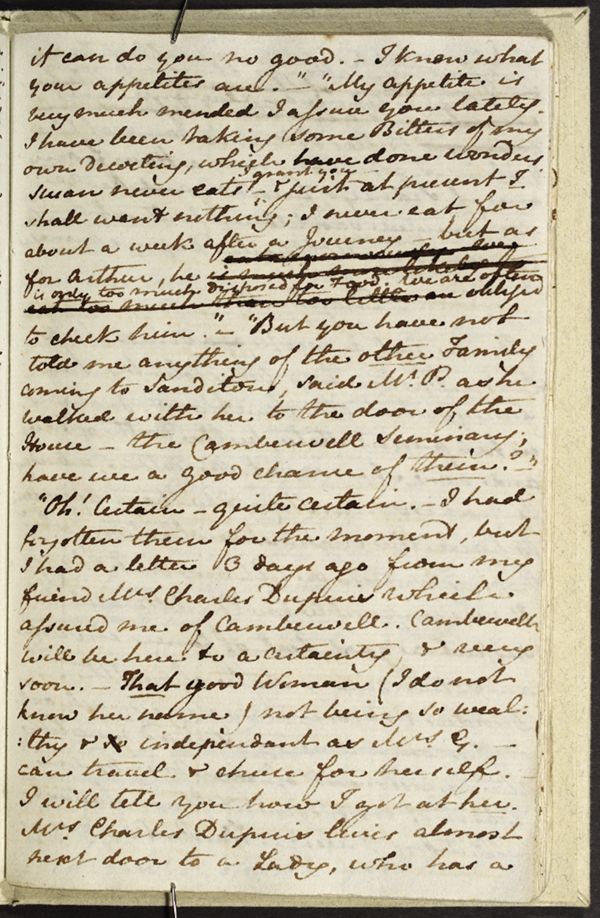 it can do you no good. – I know what
your appetites are. " – "My appetite is
very much mended I assure you lately.
I have been taking some Bitters of my
own decocting, which have done wonders
Susan never eats – I grant you – & just at present I
shall want nothing; I never eat for
about a week after a Journey – but as
for Arthur, he
is only too much disposed for Food. We are often
obliged
to check him." – "But you have not
told me anything of the other Family
coming to Sanditon, said Mr. P. as he
walked with her to the door of the
House – the Camberwell Seminary;
have we a good chance of them? "
"Oh! Certain – quite certain. – I had
forgotten them for the moment, but
I had a letter 3 days ago from my
friend Mrs. Charles Dupuis which
assured me of Camberwell. Camberwell
will be here to a certainty, & very
soon. – That good Woman (I do not
know her name) not being so weal:
:thy & independant as Mrs. G. –
can travel & chuse for herself. –
I will tell you how I got at her.
Mrs Charles Dupuis lives almost
next door to a Lady, who has a